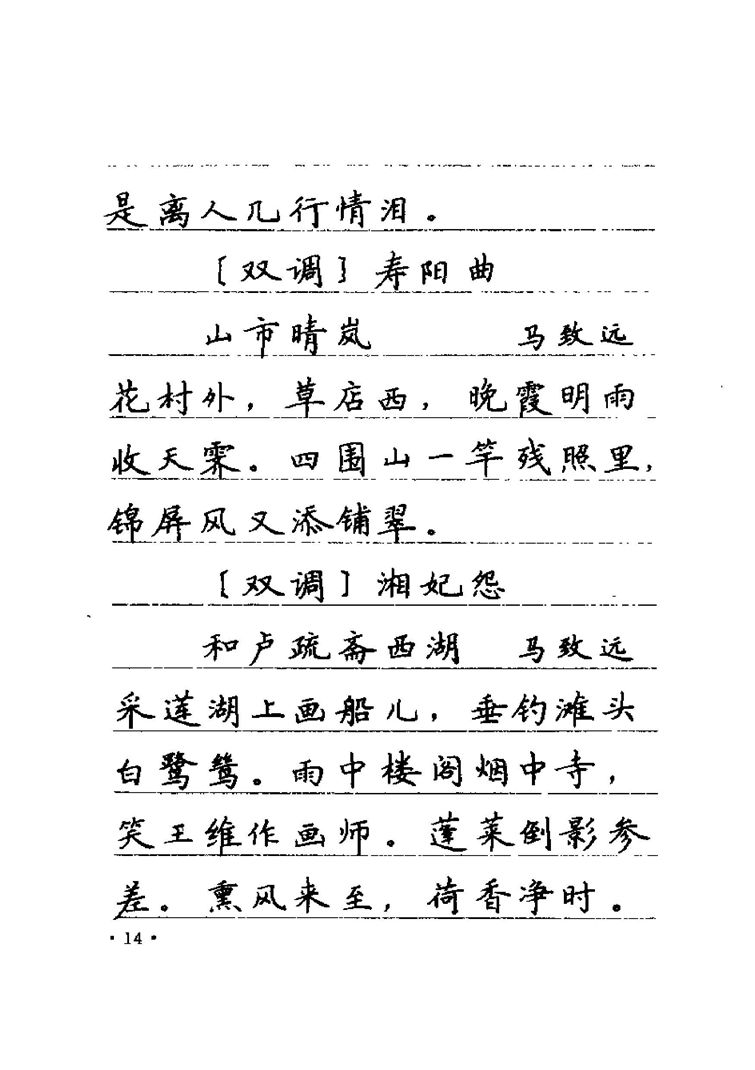 是离人几行情泪。
〔双调〕寿阳曲
山市晴岚 马致远
花村外，草店西，晚霞明雨
收天霁。四围山一竿残照里，
锦屏风又添铺翠。
〔双调〕湘妃怨
和卢疏斋西湖 马致远
采莲湖上画船儿，垂钓滩头
白鹭鸶。雨中楼阁烟中寺，
笑王维作画师。蓬莱倒影参
差。熏风来至，荷香净时。
·14·